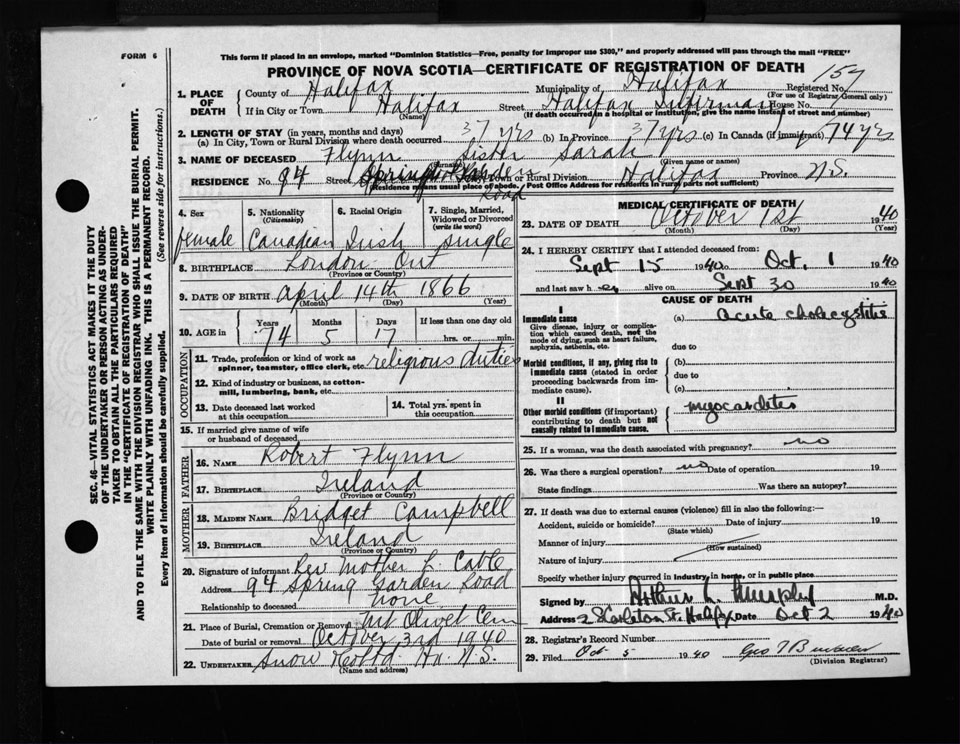 FORM 6
This form if placed in an envelope, marked "Dominion Statistics—Free, penalty for improper use $300," and properly addressed will pass through the mail "FREE"
PROVINCE OF NOVA SCOTIA—CERTIFICATE OF REGISTRATION OF DEATH
157
1. PLACE OF DEATH
County of Halifax Municipality of Halifax Registered No.
(For use of Registrar General only)
If in City or Town Halifax Street Halifax Infirmary House No.
(Name) (If death occurred in a hospital or institution, give the name instead of street and number)
2. LENGTH OF STAY (in years, months and days)
(a) In City, Town or Rural Division where death occurred 37 yrs (b) In Province 37 yrs (c) In Canada (if immigrant) 74 yrs
3. NAME OF DECEASED Flynn Sister Sarah
(Surname) (Given name or names)
RESIDENCE No. 94 Street Spring Garden Road City, Town or Rural Division Halifax Province N.S.
(Residence means usual place of abode. Post Office Address for residents in rural parts not sufficient)
4. Sex
female
5. Nationality (Citizenship)
Canadian
6. Racial Origin
Irish
7. Single, Married, Widowed or Divorced (write the word)
single
8. BIRTHPLACE London Ont
(Province or Country)
9. DATE OF BIRTH April 14th 1866
(Month) (Day) (Year)
10. AGE in Years Months Days If less than one day old
74 5 17 hrs. or min.
OCCUPATION
11. Trade, profession or kind of work as spinner, teamster, office clerk, etc. religious duties
12. Kind of industry or business, as cotton-mill, lumbering, bank, etc.
13. Date deceased last worked at this occupation
14. Total yrs. spent in this occupation
15. If married give name of wife or husband of deceased
FATHER
16. NAME Robert Flynn
17. BIRTHPLACE Ireland
(Province or Country)
MOTHER
18. MAIDEN NAME Bridget Campbell
19. BIRTHPLACE Ireland
(Province or Country)
20. Signature of informant Rev Mother L. Cable
Address 94 Spring Garden Road
Relationship to deceased none
21. Place of Burial, Cremation or Removal Mt Olivet Cem
Date of burial or removal October 3rd 1940
22. UNDERTAKER Snow & Co Ltd Hx. N.S.
(Name and address)
MEDICAL CERTIFICATE OF DEATH
23. DATE OF DEATH October 1st 1940
(Month) (Day) (Year)
24. I HEREBY CERTIFY that I attended deceased from:
Sept 15 1940 to Oct. 1 1940
and last saw her alive on Sept 30 1940
CAUSE OF DEATH
I
Immediate cause (a) acute cholecystitis
Give disease, injury or complication which caused death, not the mode of dying, such as heart failure, asphyxia, asthenia, etc.
due to
Morbid conditions, if any, giving rise to immediate cause (stated in order proceeding backwards from immediate cause).
(b)
due to
(c)
II
Other morbid conditions (if important) contributing to death but not causally related to immediate cause.
myocarditis
25. If a woman, was the death associated with pregnancy? no
26. Was there surgical operation? no Date of operation 19
State findings Was there an autopsy?
27. If death was due to external causes (violence) fill in also the following:—
Accident, suicide or homicide? Date of injury 19
(State which)
Manner of injury
(How sustained)
Nature of injury
Specify whether injury occurred in industry, in home, or in public place
Signed by Arthur L. Murphy M.D.
Address Halifax Date Oct 2 1940
28. Registrar's Record Number
29. Filed Oct 5 1940 Geo
(Division Registrar)
SEC. 46—VITAL STATISTICS ACT MAKES IT THE DUTY
OF THE UNDERTAKER OR PERSON ACTING AS UNDERTAKER
TO OBTAIN ALL THE PARTICULARS REQUIRED
IN THE "CERTIFICATE OF REGISTRATION OF DEATH"
AND TO FILE THE SAME WITH THE DIVISION REGISTRAR WHO SHALL ISSUE THE BURIAL PERMIT.
WRITE PLAINLY WITH UNFADING INK. THIS IS A PERMANENT RECORD.
Every item of information should be carefully supplied. (See reverse side for instructions.)